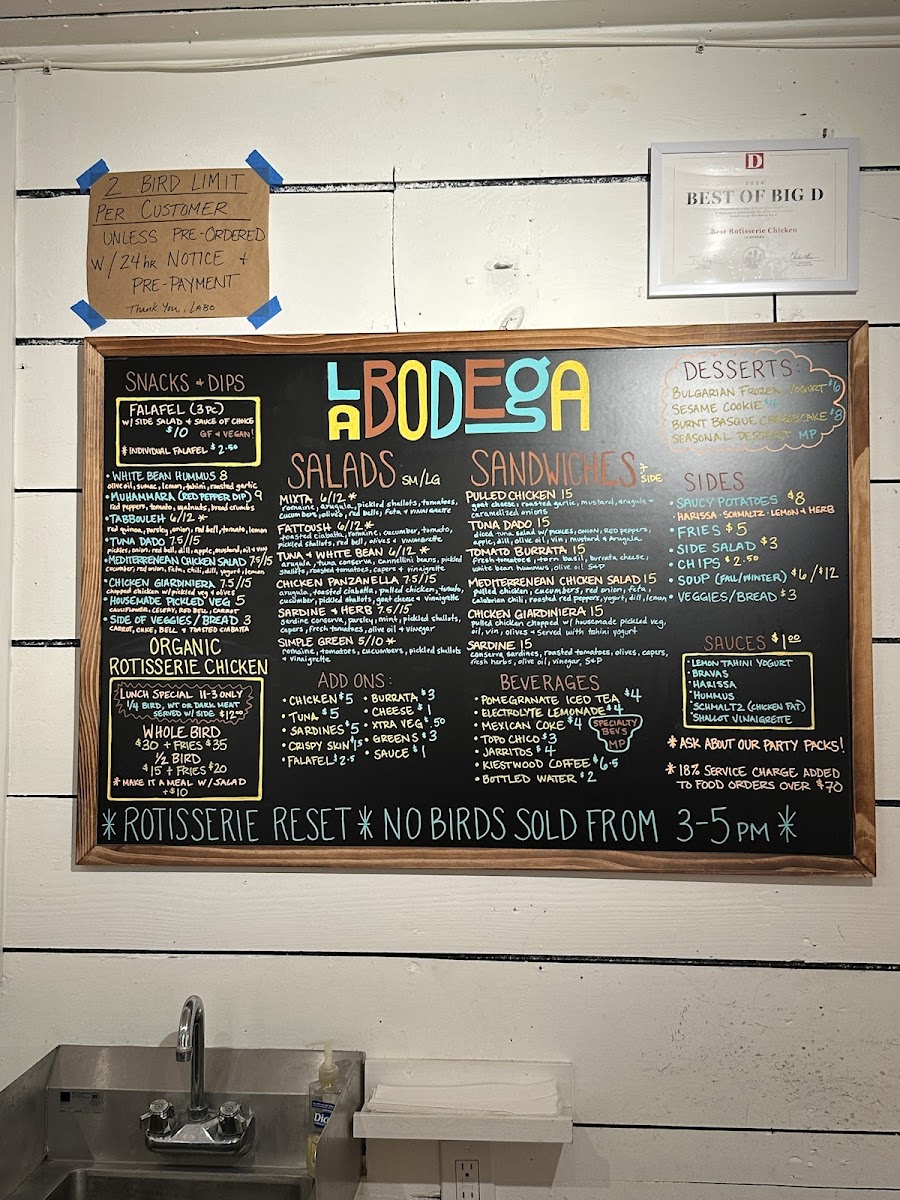 2 BIRD LIMIT
PER CUSTOMER
UNLESS PRE-ORDERED
W/24hr NOTICE +
PRE-PAYMENT
Thank You, LABO
D
BEST OF BIG D
Best Rotisserie Chicken
LA BODEGA
SNACKS + DIPS
FALAFEL (3 PC)
W/ SIDE SALAD + SAUCE OF CHOICE
$10 GF + VEGAN!
* INDIVIDUAL FALAFEL $2.50
• WHITE BEAN HUMMUS 8
olive oil, sumac, lemon, tahini, roasted garlic
• MUHAMMARA (RED PEPPER DIP) 9
red peppers, tomato, walnuts, bread crumbs
• TABBOULEH 6/12 *
red quinoa, parsley, onion, red bell, tomato, lemon
• TUNA DADO 7.5/15
pickles, onion, red bell, dill, apple, mustard, oil + vin
• MEDITERRENEAN CHICKEN SALAD 7.5/15
cucumber, red onion, feta, chili, dill, yogurt, lemon
• CHICKEN GIARDINIERA 7.5/15
chopped chicken w/ pickled veg + olives
• HOUSEMADE PICKLED VEG 5
CAULIFLOWER, CELERY, RED BELL, CARROT
• SIDE OF VEGGIES/BREAD 3
CARROT, CUKE, BELL + TOASTED CIABATTA
ORGANIC
ROTISSERIE CHICKEN
LUNCH SPECIAL 11-3 ONLY
1/4 BIRD, WT OR DARK MEAT
SERVED W/ SIDE $12.00
WHOLE BIRD
$30 + FRIES $35
1/2 BIRD
$15 + FRIES $20
* MAKE IT A MEAL W/ SALAD
+$10
SALADS SM/LG
MIXTA 6/12 *
romaine, arugula, pickled shallots, tomatoes,
cucumbers, olives, red bells, feta + vinaigrette
FATTOUSH 6/12 *
toasted ciabatta, romaine, cucumber, tomato,
pickled shallots, red bell, olives + vinaigrette
TUNA + WHITE BEAN 6/12 *
arugula, tuna conserva, cannellini beans, pickled
shallots, roasted tomatoes, capers + vinaigrette
CHICKEN PANZANELLA 7.5/15
arugula, toasted ciabatta, pulled chicken, tomato,
cucumber, pickled shallots, goat cheese + vinaigrette
SARDINE + HERB 7.5/15
sardine conserva, parsley, mint, pickled shallots,
capers, fresh tomatoes, olive oil + vinegar
SIMPLE GREEN 5/10 *
romaine, tomatoes, cucumbers, pickled shallots
+ vinaigrette
ADD ONS:
• CHICKEN $5
• TUNA $5
• SARDINES $5
• CRISPY SKIN $1.5
• FALAFEL $2.5
• BURRATA $3
• CHEESE $1
• XTRA VEG $.50
• GREENS $3
• SAUCE $1
SANDWICHES + SIDE
PULLED CHICKEN 15
goat cheese, roasted garlic, mustard, arugula +
caramelized onions
TUNA DADO 15
diced tuna salad w/ PICKLES, ONION, RED PEPPERS,
apple, dill, olive oil, vin, mustard + Arugula
TOMATO BURRATA 15
fresh tomatoes, torn basil, burrata cheese,
white bean hummus, olive oil S+P
MEDITERRENEAN CHICKEN SALAD 15
pulled chicken, cucumbers, red onion, feta,
calabrian chili, roasted red peppers, yogurt, dill, lemon
CHICKEN GIARDINIERA 15
pulled chicken chopped w/ housemade pickled veg,
oil, vin, olives + Served with tahini yogurt
SARDINE 15
conserva sardines, roasted tomatoes, olives, capers,
fresh herbs, olive oil, vinegar, S+P
BEVERAGES
• POMEGRANATE ICED TEA $4
• ELECTROLYTE LEMONADE $4
• MEXICAN COKE $4
• TOPO CHICO $3
• JARRITOS $4
• KIESTWOOD COFFEE $6.5
• BOTTLED WATER $2
SPECIALTY
BEV'S
MP
DESSERTS:
BULGARIAN FROZEN YOGURT $6
SESAME COOKIE $4
BURNT BASQUE CHEESECAKE $8
SEASONAL DESSERT MP
SIDES
• SAUCY POTATOES $8
HARISSA · SCHMALTZ · LEMON + HERB
• FRIES $5
• SIDE SALAD $3
• CHIPS $2.50
• SOUP (FALL/WINTER) $6/$12
• VEGGIES/BREAD $3
SAUCES $1.00
• LEMON TAHINI YOGURT
• BRAVAS
• HARISSA
• HUMMUS
• SCHMALTZ (CHICKEN FAT)
• SHALLOT VINAIGRETTE
* ASK ABOUT OUR PARTY PACKS!
* 18% SERVICE CHARGE ADDED
TO FOOD ORDERS OVER $70
* ROTISSERIE RESET * NO BIRDS SOLD FROM 3-5PM *
Dial